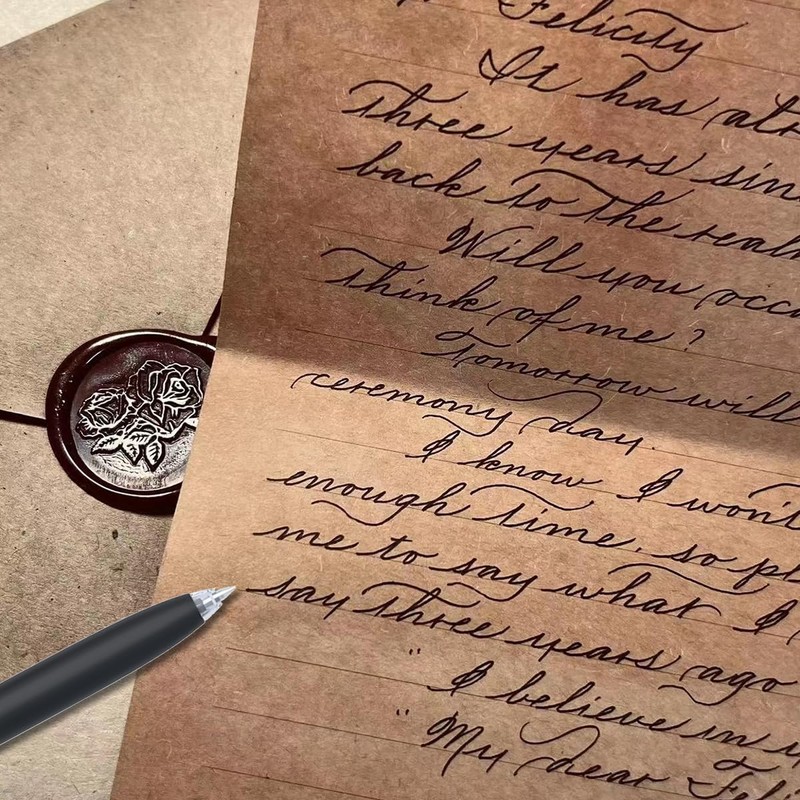 Felicity
It has
three years
back to the
Will you
think of me?
Tomorrow will
ceremony day.
I know I won't
enough time, so
me to say what I
say three years ago
" I believe in
" My dear